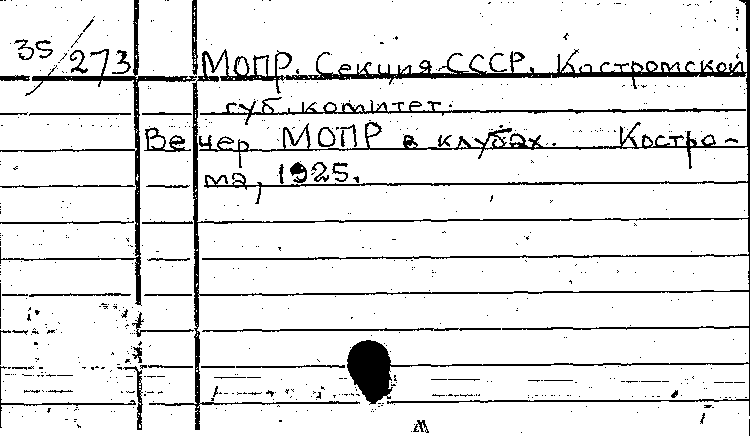 35/273 МОПР. Секция СССР. Костромской
губ. комитет.
Вечер МОПР в клубах. Костро-
ма, 1925.